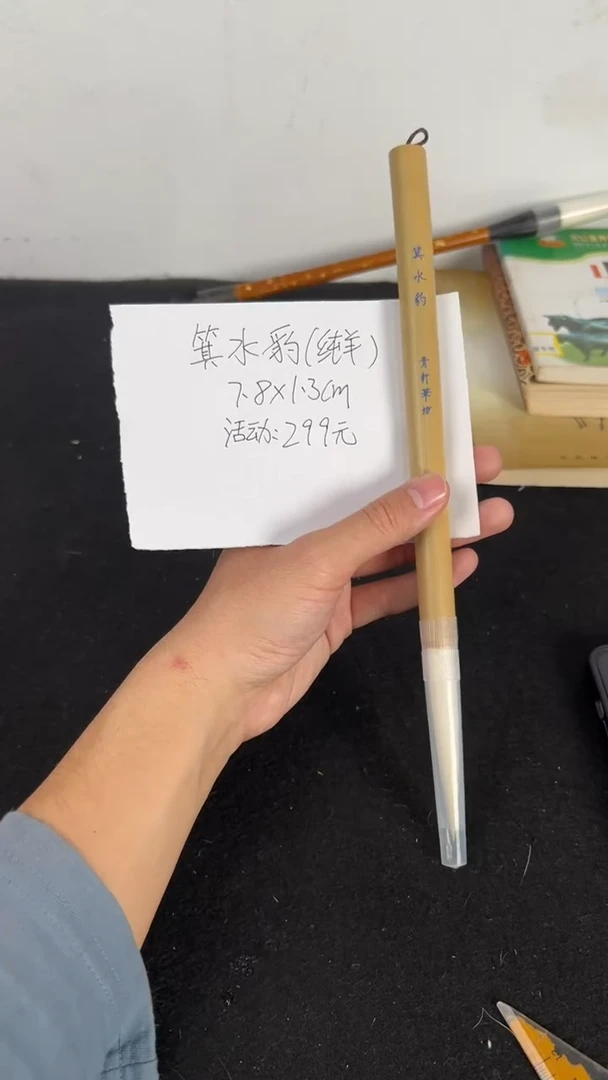 箕水豹(纯羊)
7.8×1.3cm
活动:299元
箕水豹